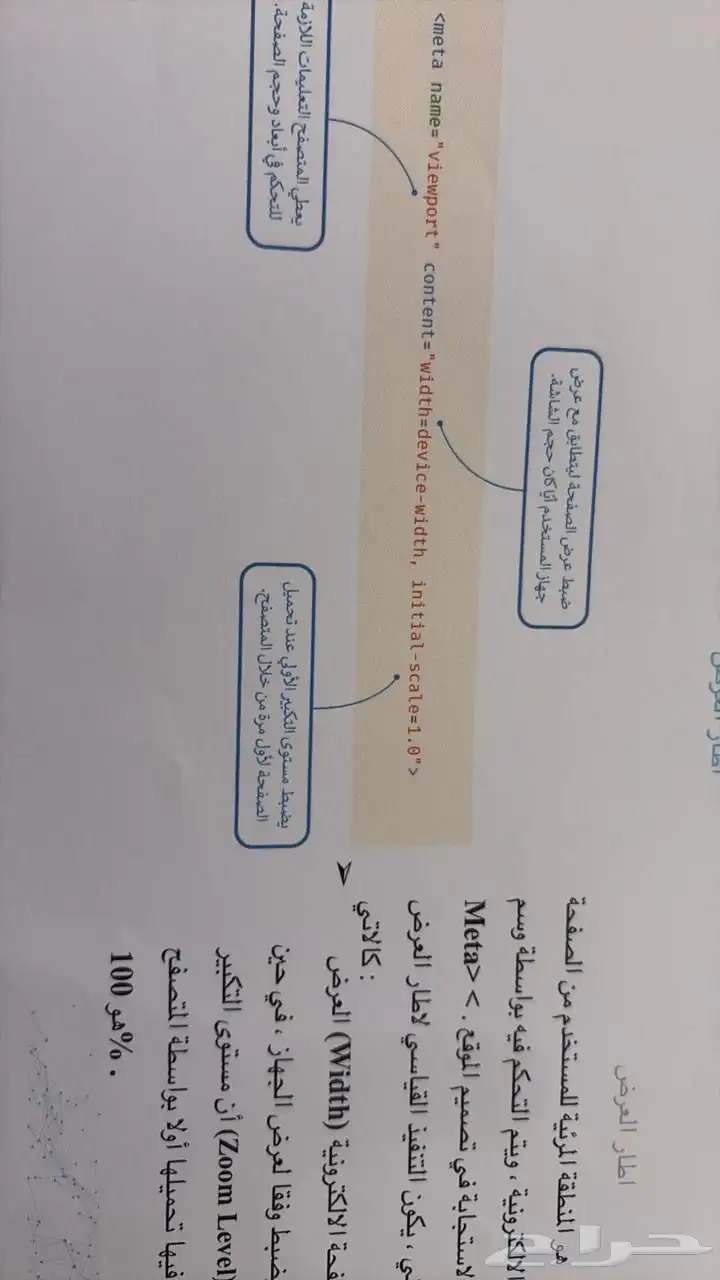 اطار العرض
هو المنطقة المرئية للمستخدم من الصفحة
الالكترونية ، ويتم التحكم فيه بواسطة وسم
Meta> < . لاستجابة في تصميم الموقع
ي ، يكون التنفيذ القياسي لاطار العرض
كالاتي :
➤ العرض (Width) فحة الالكترونية
ضبط وفقا لعرض الجهاز ، في حين
أن مستوى التكبير (Zoom Level)
فيها تحميلها أولا بواسطة المتصفح
هو 100% .
اطار العرض
ضبط عرض الصفحة ليتطابق مع عرض
جهاز المستخدم أيًا كان حجم الشاشة.
<meta name="viewport" content="width=device-width, initial-scale=1.0">
يعطي المتصفح التعليمات اللازمة
للتحكم في أبعاد وحجم الصفحة.
يضبط مستوى التكبير الأولي عند تحميل
الصفحة لأول مرة من خلال المتصفح.
حراج